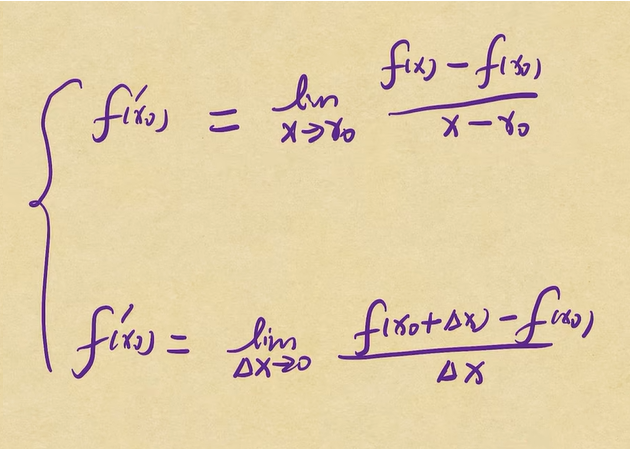 f'(x₀) = lim x→x₀ (f(x) − f(x₀)) / (x − x₀)
f'(x₀) = lim Δx→0 (f(x₀+Δx) − f(x₀)) / Δx